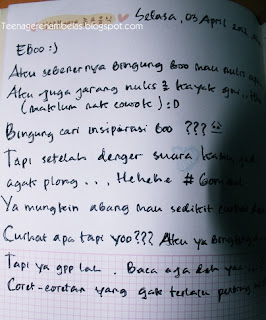 Teenagerehambelas.blogspot.com
Selasa, 03 April
Eboo :)
Aku sebenernya Bingung Boo mau nulis apa
Aku juga jarang nulis 2 kayak gini
(maklum nak cowok) :D
Bingung cari insipirasi Boo ???
Tapi setelah denger suara kamu jadi
agak plong ... Hehehe #Gombal
Ya mungkin abang mau sedikit curhat
Curhat apa tapi yoo??? Aku ya Bingung
Tapi ya gpp lah . Baca aja dah ya
Coret-coretan yang gak terlalu penting